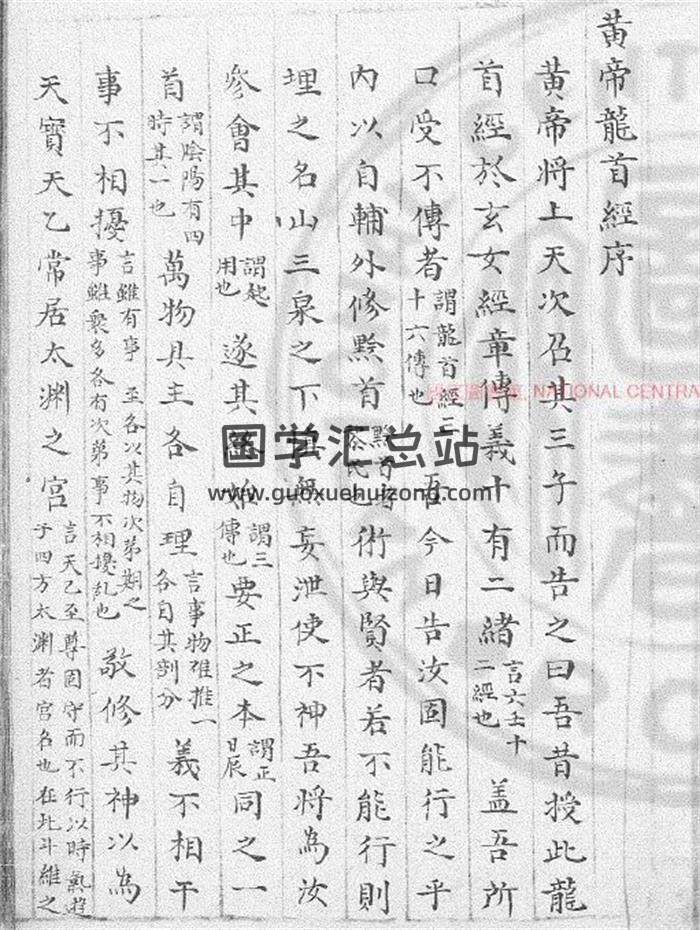 黄帝龍首經序
黄帝将上天次召其三子而告之曰吾昔授此龍
首經於玄女經章傳義十有二緒言六壬十二經也盖吾所
口受不傳者謂龍首經三十六傳也吾今日告汝固能行之乎
内以自輔外修黔首黔首也術與賢者若不能行則
埋之名山三泉之下無妄泄使不神吾将為汝
參會其中謂起用也遂其謂三傳也要正之本謂正日辰同之一
首謂陰陽有四時其一也萬物具主各自理言事物雖推一各自其剖分義不相干
事不相擾言雖有事至各以其物次苐期之事雖衆多各有次苐事不相擾乱也敬修其神以為
天寳天乙常居太渊之宫言天乙至尊固守而不行以時氣遊于四方太渊者宫名也在北斗維之
国学汇总站
www.guoxuehuizong.com
NATIONAL CENTRA